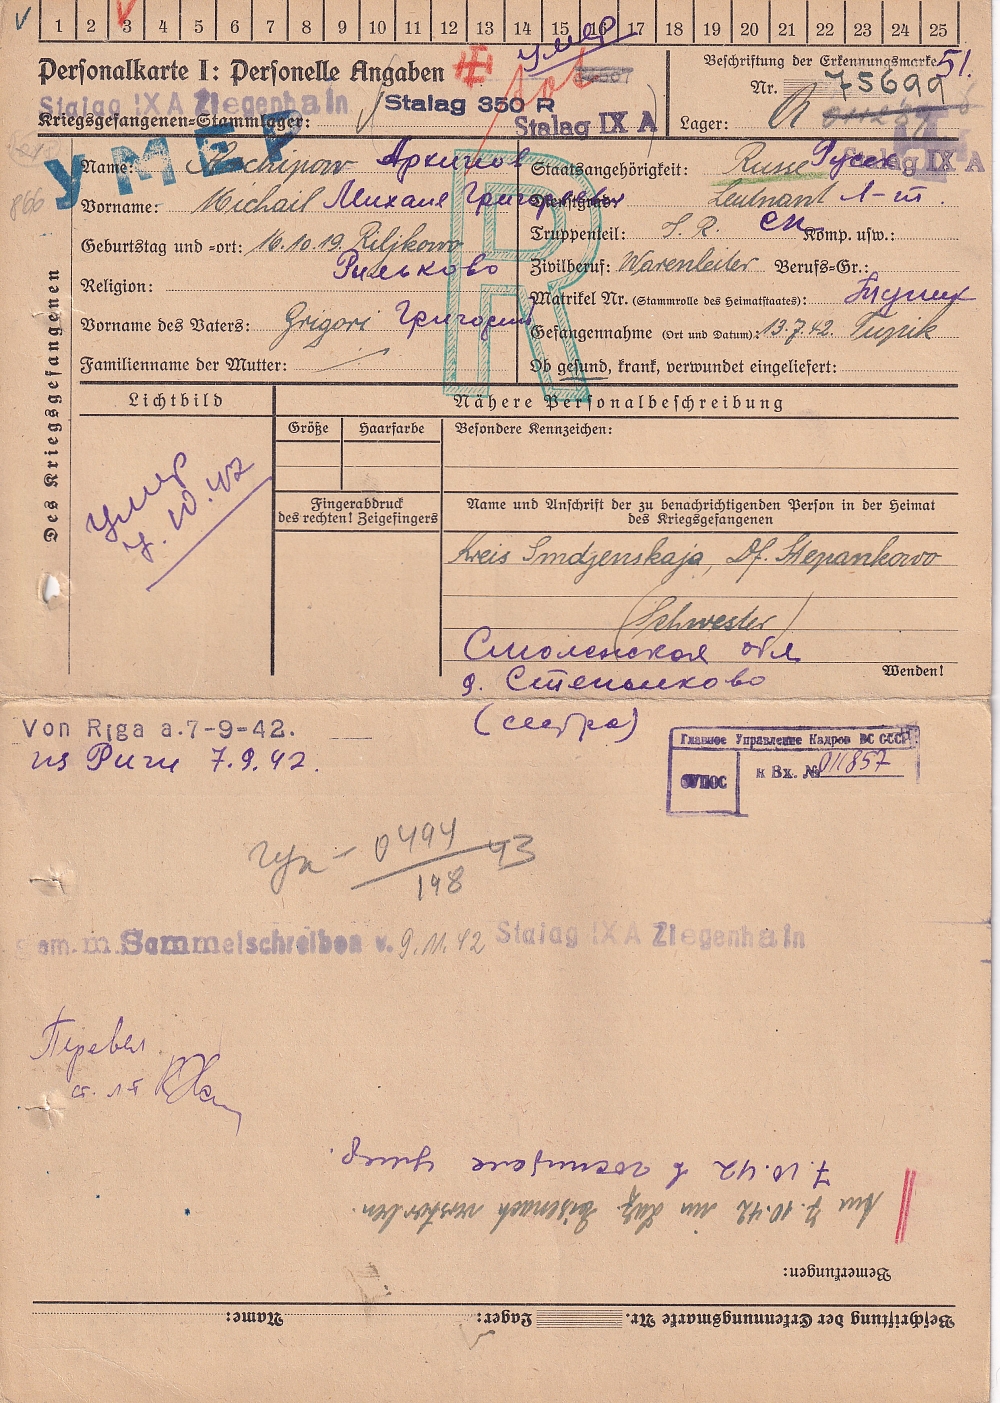 1 2 3 4 5 6 7 8 9 10 11 12 13 14 15 16 17 18 19 20 21 22 23 24 25
Personalkarte I: Personelle Angaben
умер
tot
Beschriftung der Erkennungsmarke 51.
Nr. 75699
Stalag IX A Ziegenhain
Stalag 350 R
Kriegsgefangenen-Stammlager:
Stalag IX A
Lager: R
Stalag IX A
УМЕР
866
Des Kriegsgefangenen
Name: Archipow Архипов
Vorname: Michail Михаил Григорьевич
Geburtstag und -ort: 16.10.19. Riljkowo
Рильково
Religion:
Vorname des Vaters: Grigori Григорий
Familienname der Mutter:
R
Staatsangehörigkeit: Russe Русск
Dienstgrad: Leutnant л-т.
Truppenteil: S. R. сп Komp. usw.:
Zivilberuf: Warenleiter Berufs-Gr.:
Matrikel Nr. (Stammrolle des Heimatstaates):
Gefangennahme (Ort und Datum): 13.7.42. Tupik
Ob gesund, krank, verwundet eingeliefert:
Lichtbild
Nähere Personalbeschreibung
Größe
Haarfarbe
Besondere Kennzeichen:
умер
7.10.42
Fingerabdruck
des rechten! Zeigefingers
Name und Anschrift der zu benachrichtigenden Person in der Heimat
des Kriegsgefangenen
Kreis Smolzenskaja, Df. Stepankowo
(Schwester)
Смоленская обл
д. Степаньково
(сестра)
Wenden!
Von Riga a.7-9-42.
из Риги 7.9.42.
Главное Управление Кадров ВС СССР
к Вх. № 011857
0494
198
43
Gem. m. Sammelschreiben v. 9.11.42 Stalag IX A Ziegenhain
Перевел
ст. л-т
7.10.42 в госпитале умер.
Am 7.10.42 im Laz. Eisenach verstorben.
Bemerkungen:
Beschriftung der Erkennungsmarke Nr. Lager: Name: